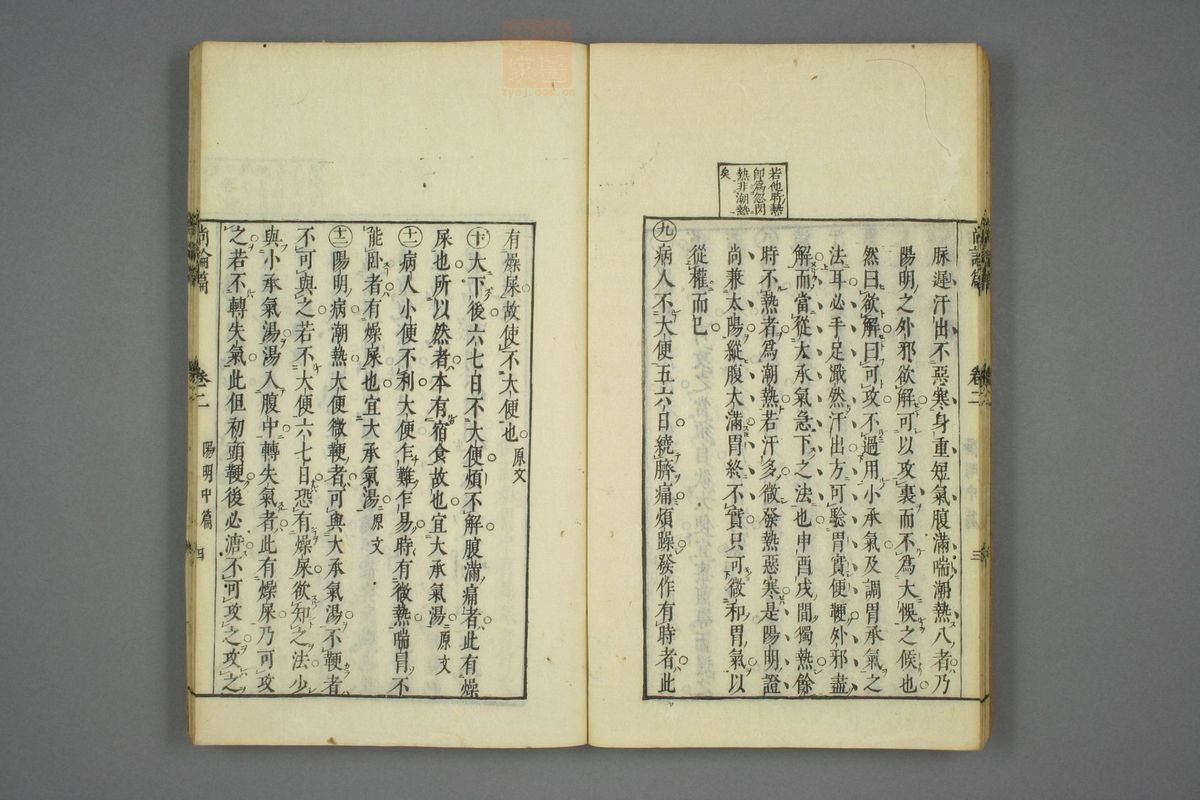 若他時熱
即爲忽閃
熱非潮熱
矣
脉遲汗出不惡寒身重短氣腹滿喘潮熱八者乃
陽明之外邪欲解可以攻裏而不爲大悞之候也
然曰欲解曰可攻不過用小承氣及調胃承氣之
法耳必手足濈然汗出方可驗胃實便鞕外邪盡
解而當從大承氣急下之法也申酉戌間獨熱餘
時不熱者爲潮熱若汗多微發熱惡寒是陽明證
尚兼太陽縱腹大滿胃終不實只可微和胃氣以
從權而已
㊈病人不大便五六日繞臍痛煩躁發作有時者此
尚論篇 卷二 陽明中篇 四
有燥屎故使不大便也 原文
㊉大下後六七日不大便煩不解腹滿痛者此有燥
屎也所以然者本有宿食故也宜大承氣湯 原文
十一病人小便不利大便乍難乍易時有微熱喘冒不
能卧者有燥屎也宜大承氣湯 原文
十二陽明病潮熱大便微鞕者可與大承氣湯不鞕者
不可與之若不大便六七日恐有燥屎欲知之法少
與小承氣湯湯入腹中轉失氣者此有燥屎乃可攻
之若不轉失氣此但初頭鞕後必溏不可攻之攻之